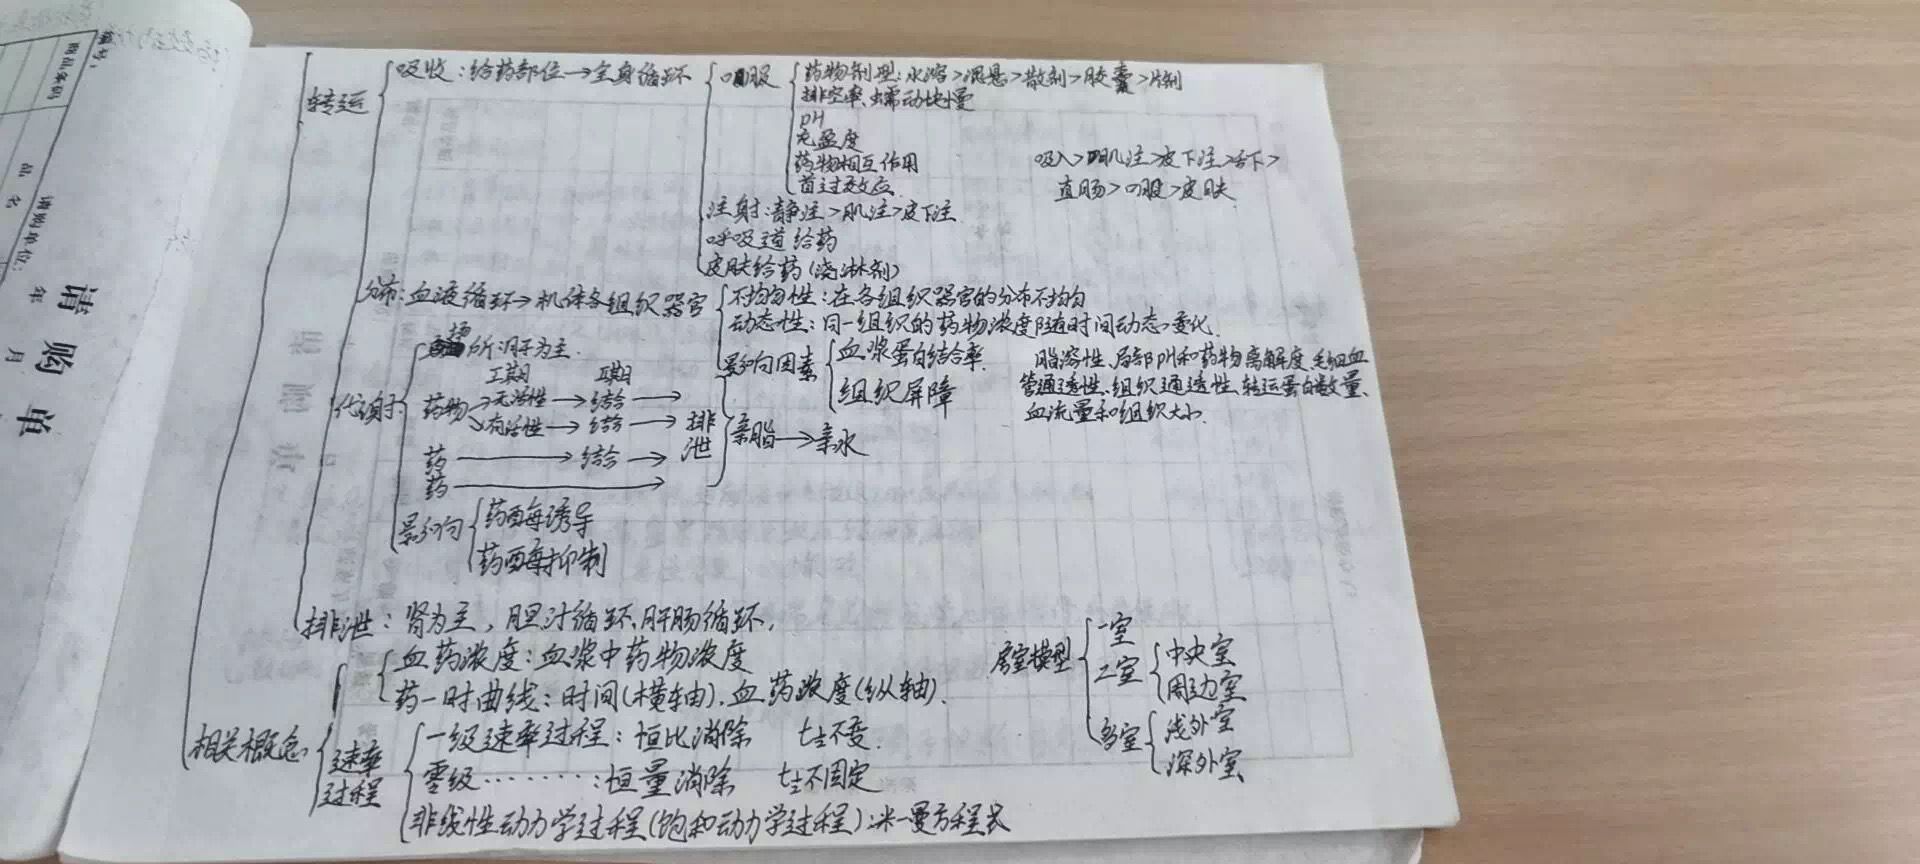 转运
吸收：给药部位→全身循环
口服
药物剂型：水溶>混悬>散剂>胶囊>片剂
排空率、蠕动快慢
pH
充盈度
药物相互作用
首过效应
注射：静注>肌注>皮下注
呼吸道给药
皮肤给药(浇淋剂)
吸入>肌注>皮下注>舌下>
直肠>口服>皮肤
分布：血液循环→机体各组织器官
不均匀性：在各组织器官的分布不均匀
动态性：同一组织的药物浓度随时间动态变化
影响因素
血浆蛋白结合率
组织屏障
脂溶性、局部pH和药物离解度、毛细血
管通透性、组织通透性、转运蛋白数量、
血流量和组织大小
代谢
场所：肝为主
I期 II期
药物→无活性→结合→
→有活性→结合→
药→结合→
药→
排泄
亲脂→亲水
影响
药酶诱导
药酶抑制
排泄：肾为主，胆汁循环、肝肠循环，
相关概念
血药浓度：血浆中药物浓度
药一时曲线：时间(横轴)，血药浓度(纵轴)
速率
过程
一级速率过程：恒比消除 t½不变
零级………：恒量消除 t½不固定
非线性动力学过程(饱和动力学过程)：米-曼方程式
房室模型
一室
二室
中央室
周边室
多室
浅外室
深外室
请购单
年 月
请购单位：
品名
商品条码
编号：